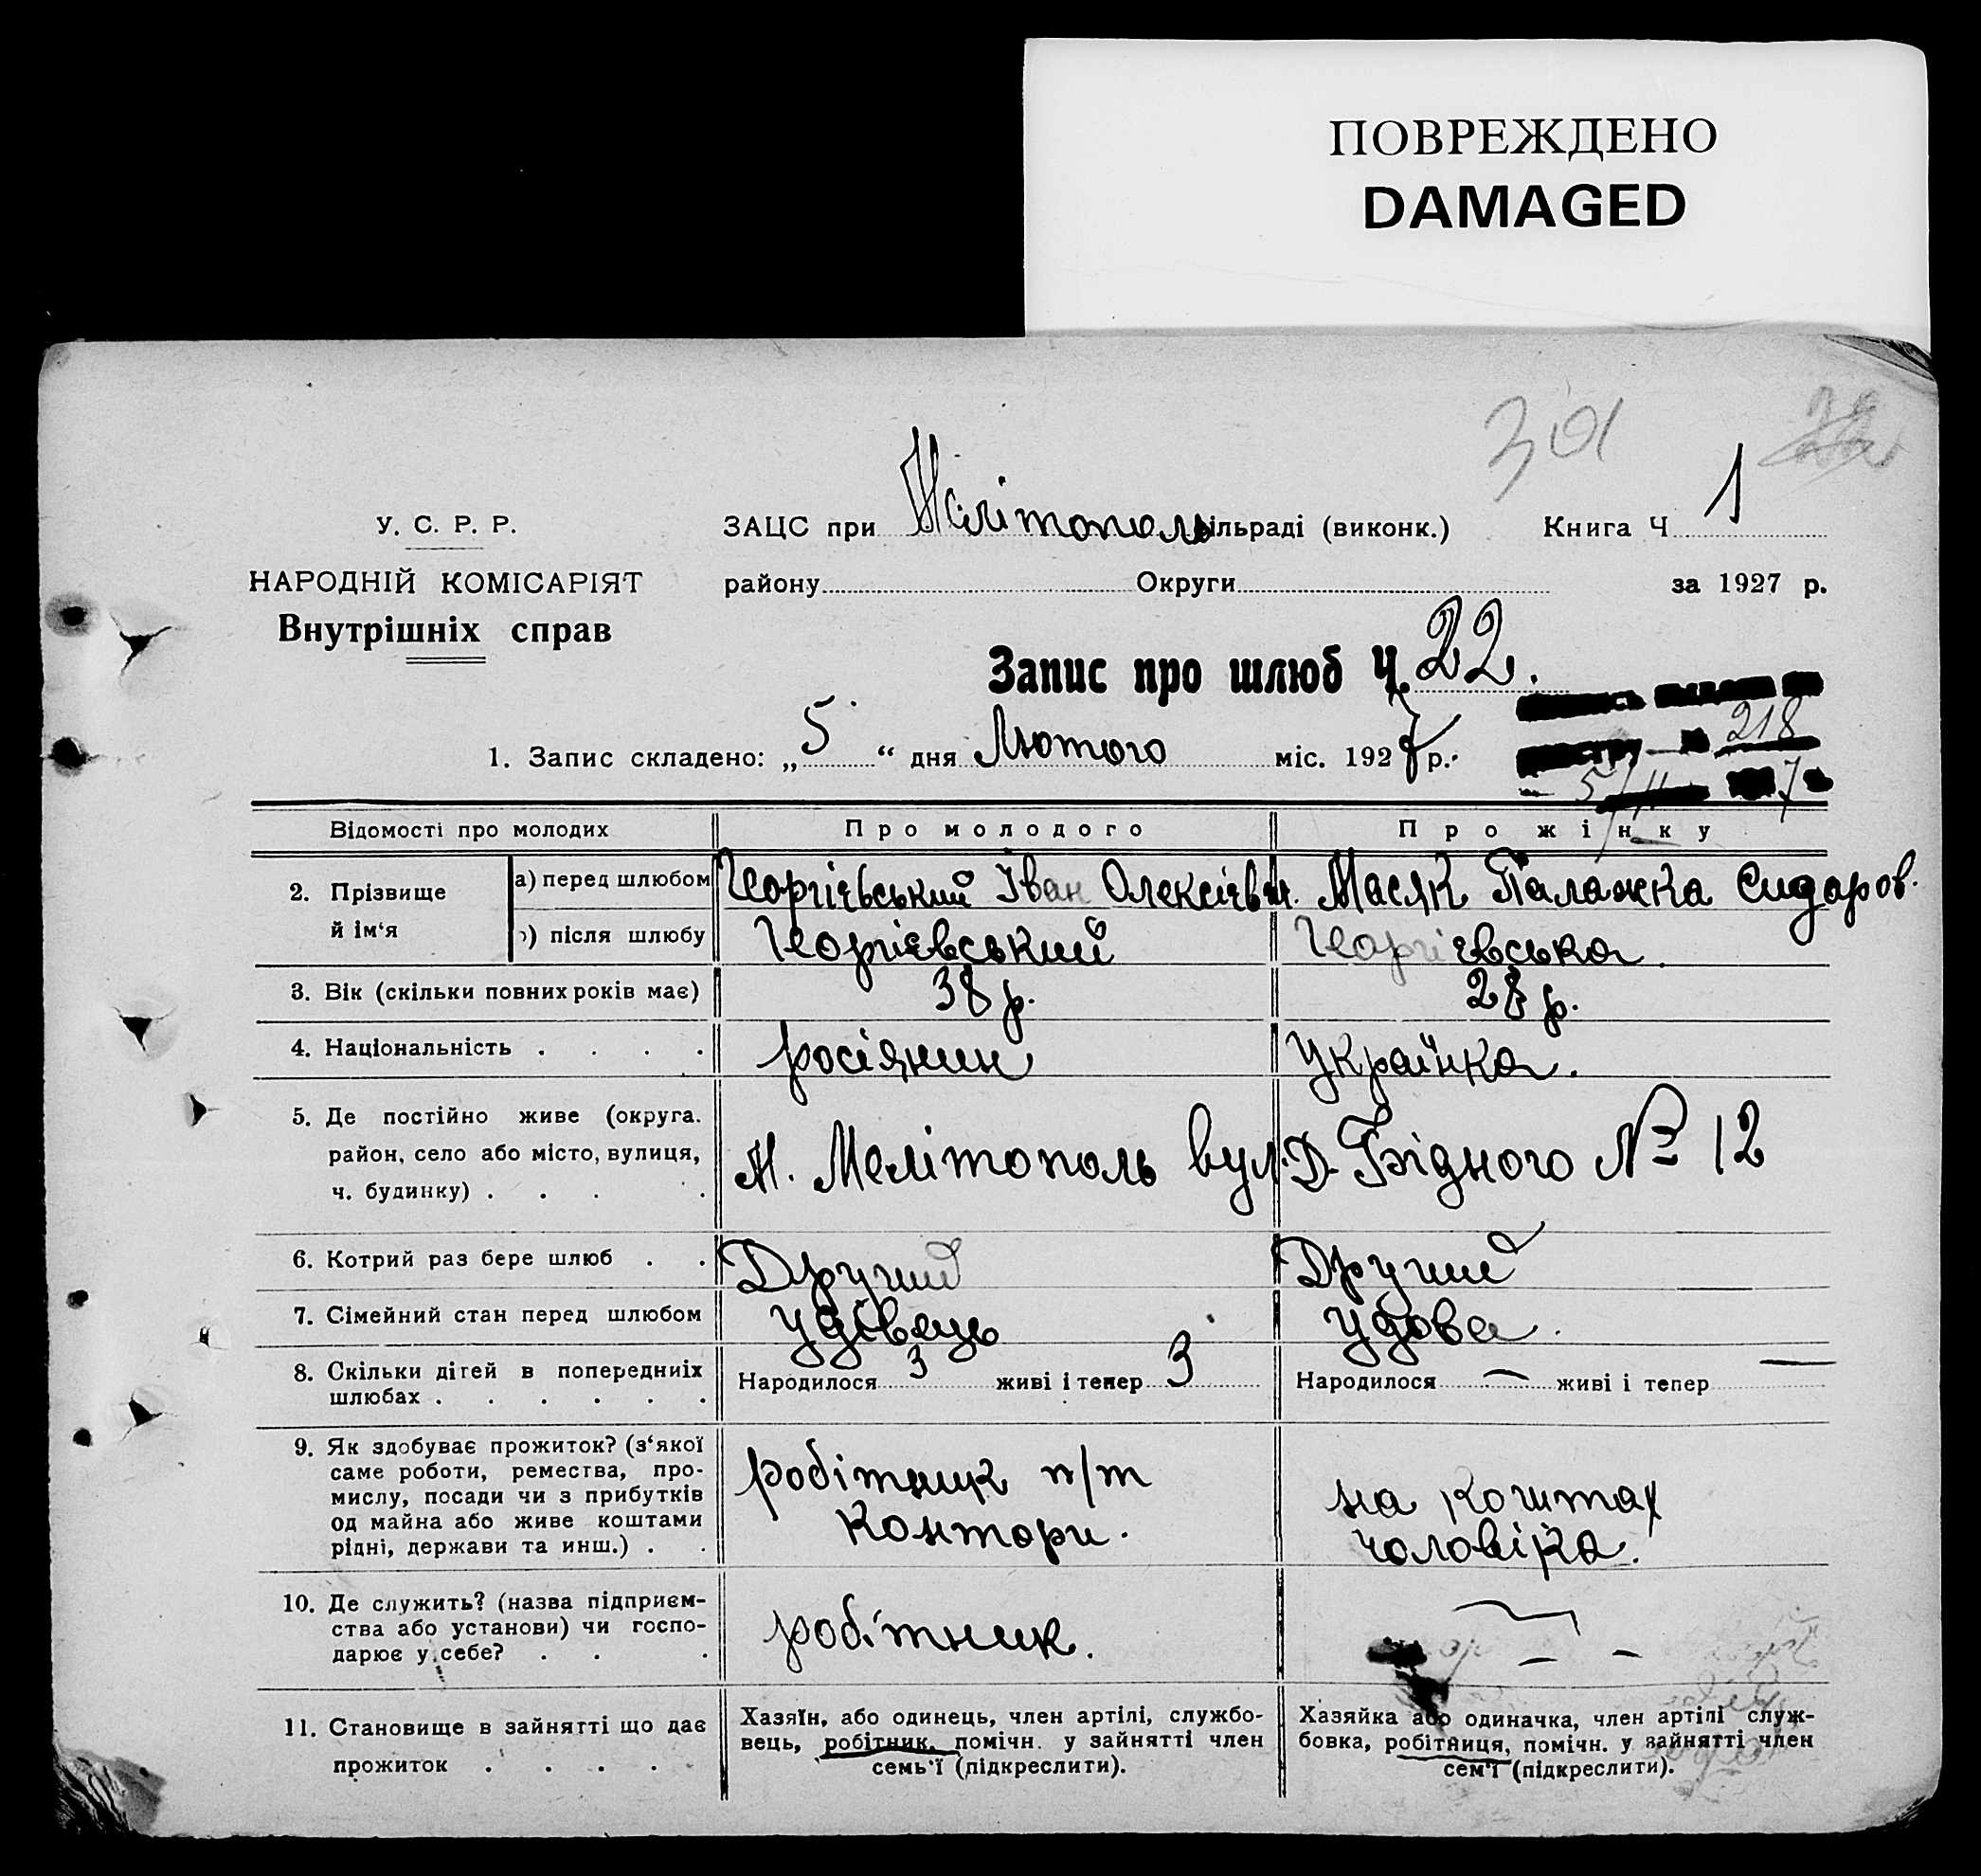 ПОВРЕЖДЕНО
DAMAGED
30
У. С. Р. Р.
ЗАЦС при Мелітополь сільраді (виконк.) Книга Ч 1
НАРОДНІЙ КОМІСАРІЯТ
району Округи за 1927 р.
Внутрішніх справ
Запис про шлюб Ч. 22.
218
1. Запис складено: „5“ дня Лютого міс. 1927 р.
5/II 7
Відомості про молодих Про молодого Про жінку
2. Прізвище й ім‘я
а) перед шлюбом Георгієвський Іван Олексієв Масяк Палажка Сидоров.
б) після шлюбу Георгієвський Георгієвська.
3. Вік (скільки повних років має) 38 р. 28 р.
4. Національність . . . . росіянин Українка.
5. Де постійно живе (округа.
район, село або місто, вулиця,
ч. будинку) . . . . М. Мелітополь вул. Д. Бідного № 12
6. Котрий раз бере шлюб . . Другий Другий
7. Сімейний стан перед шлюбом Удівець Удова.
8. Скільки дітей в попередниіх
шлюбах . . . . . . Народилося 3 живі і тепер 3 Народилося — живі і тепер —
9. Як здобуває прожиток? (з‘якої
саме роботи, ремества, про-
мислу, посади чи з прибутків
од майна або живе коштами
рідні, держави та инш.) . .
робітник п/т
Контори.
на коштах
чоловіка.
10. Де служить? (назва підприєм-
ства або установи) чи госпо-
дарює у себе? . . .
робітник.
— —
11. Становище в зайнятті що дає
прожиток . . . . .
Хазяїн, або одинець, член артілі, службо-
вець, робітник, помічн. у зайнятті член
семь‘ї (підкреслити).
Хазяйка або одиначка, член артілі служ-
бовка, робітниця, помічн. у зайнятті член
сем‘ї (підкреслити).